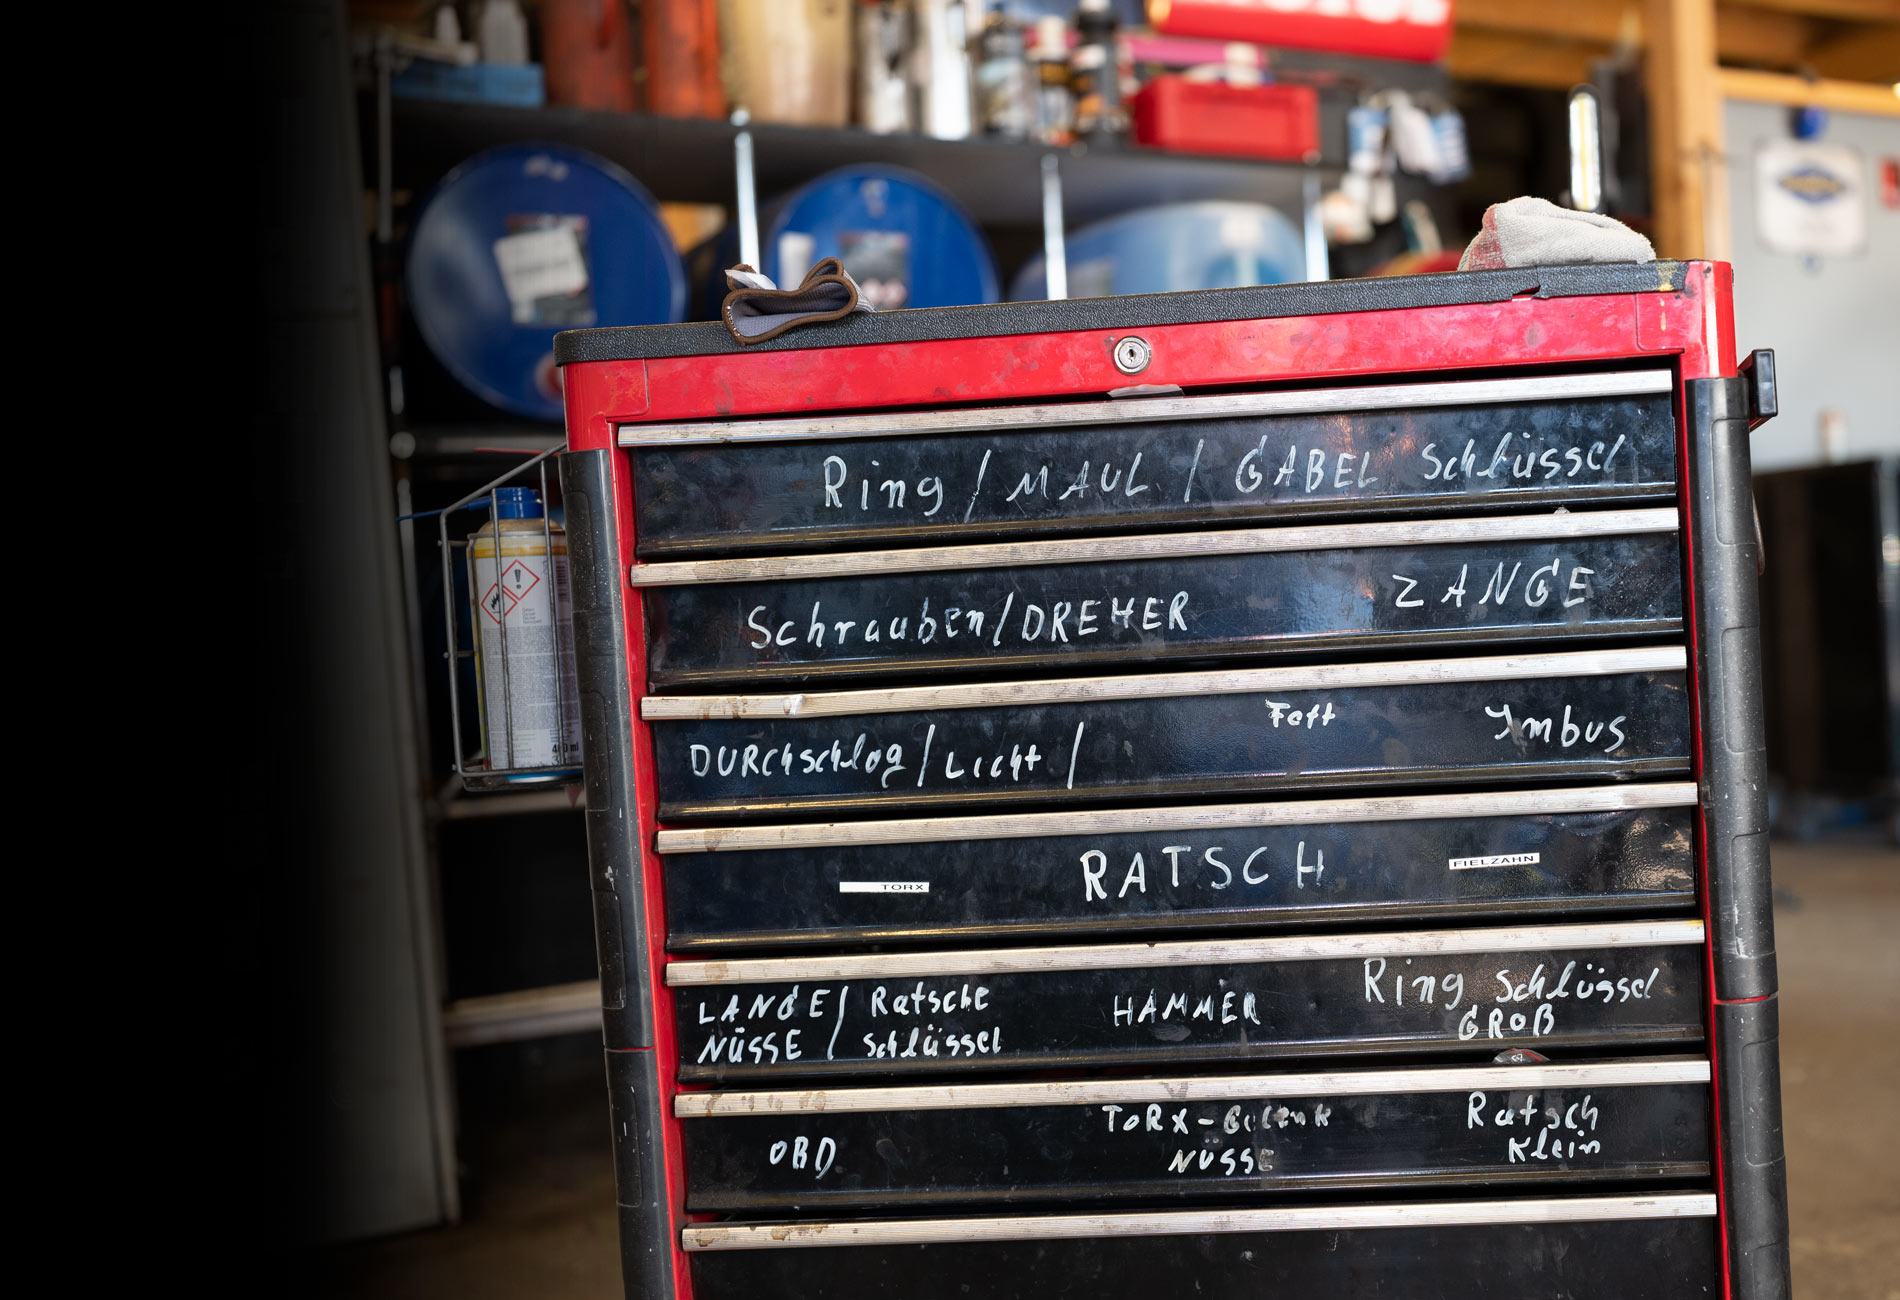 Ring / MAUL / GABEL Schlüssel
Schrauben/DREHER ZANGE
DURCHschlag / Licht / Fett Imbus
TORX RATSCH FIELZAHN
LANGE / Ratsche HAMMER Ring Schlüssel
NÜSSE / Schlüssel GROß
OBD TORX-Gelenk Ratsch
NÜSSE Klein